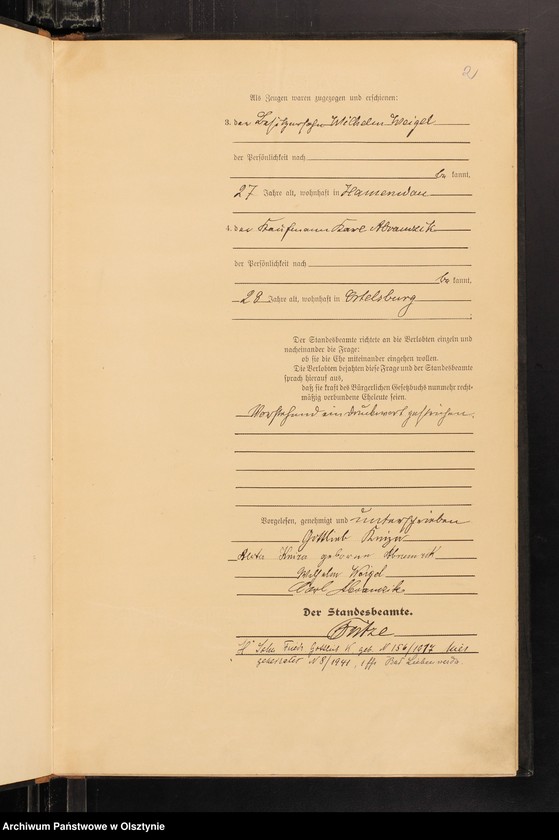 2
Als Zeugen waren zugezogen und erschienen:
3. der Besitzersohn Wilhelm Weigel
der Persönlichkeit nach
be kannt,
27 Jahre alt, wohnhaft in
4. der Kaufmann Karl Abramzik
der Persönlichkeit nach
be kannt,
28 Jahre alt, wohnhaft in Ortelsburg
Der Standesbeamte richtete an die Verlobten einzeln und
nacheinander die Frage:
ob sie die Ehe miteinander eingehen wollen.
Die Verlobten bejahten diese Frage und der Standesbeamte
sprach hierauf aus,
daß sie kraft des Bürgerlichen Gesetzbuchs nunmehr recht-
mäßig verbundene Eheleute seien.
Vorstehend ein Druckwort gestrichen.
Vorgelesen, genehmigt und unterschrieben
Gottlieb
geborene Abramzik
Wilhelm Weigel
Karl Abramzik
Der Standesbeamte.
Gottlieb K. geb. N
geheiratet N 8/1941, Bad Liebenwerda.
Archiwum Państwowe w Olsztynie